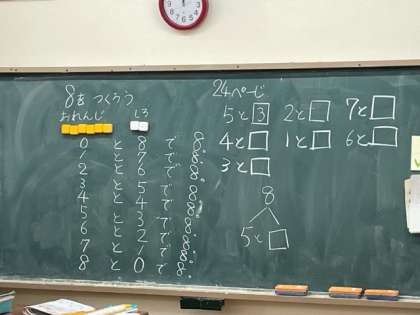 8をつくろう
おれんじ しろ
0と8で8
1と7で8
2と6で8
3と5で8
4と4で8
5と3で8
6と2で8
7と1で8
8と0で8
24ぺーじ
5と3 2と□ 7と□
4と□ 1と□ 6と□
3と□
8
5と□